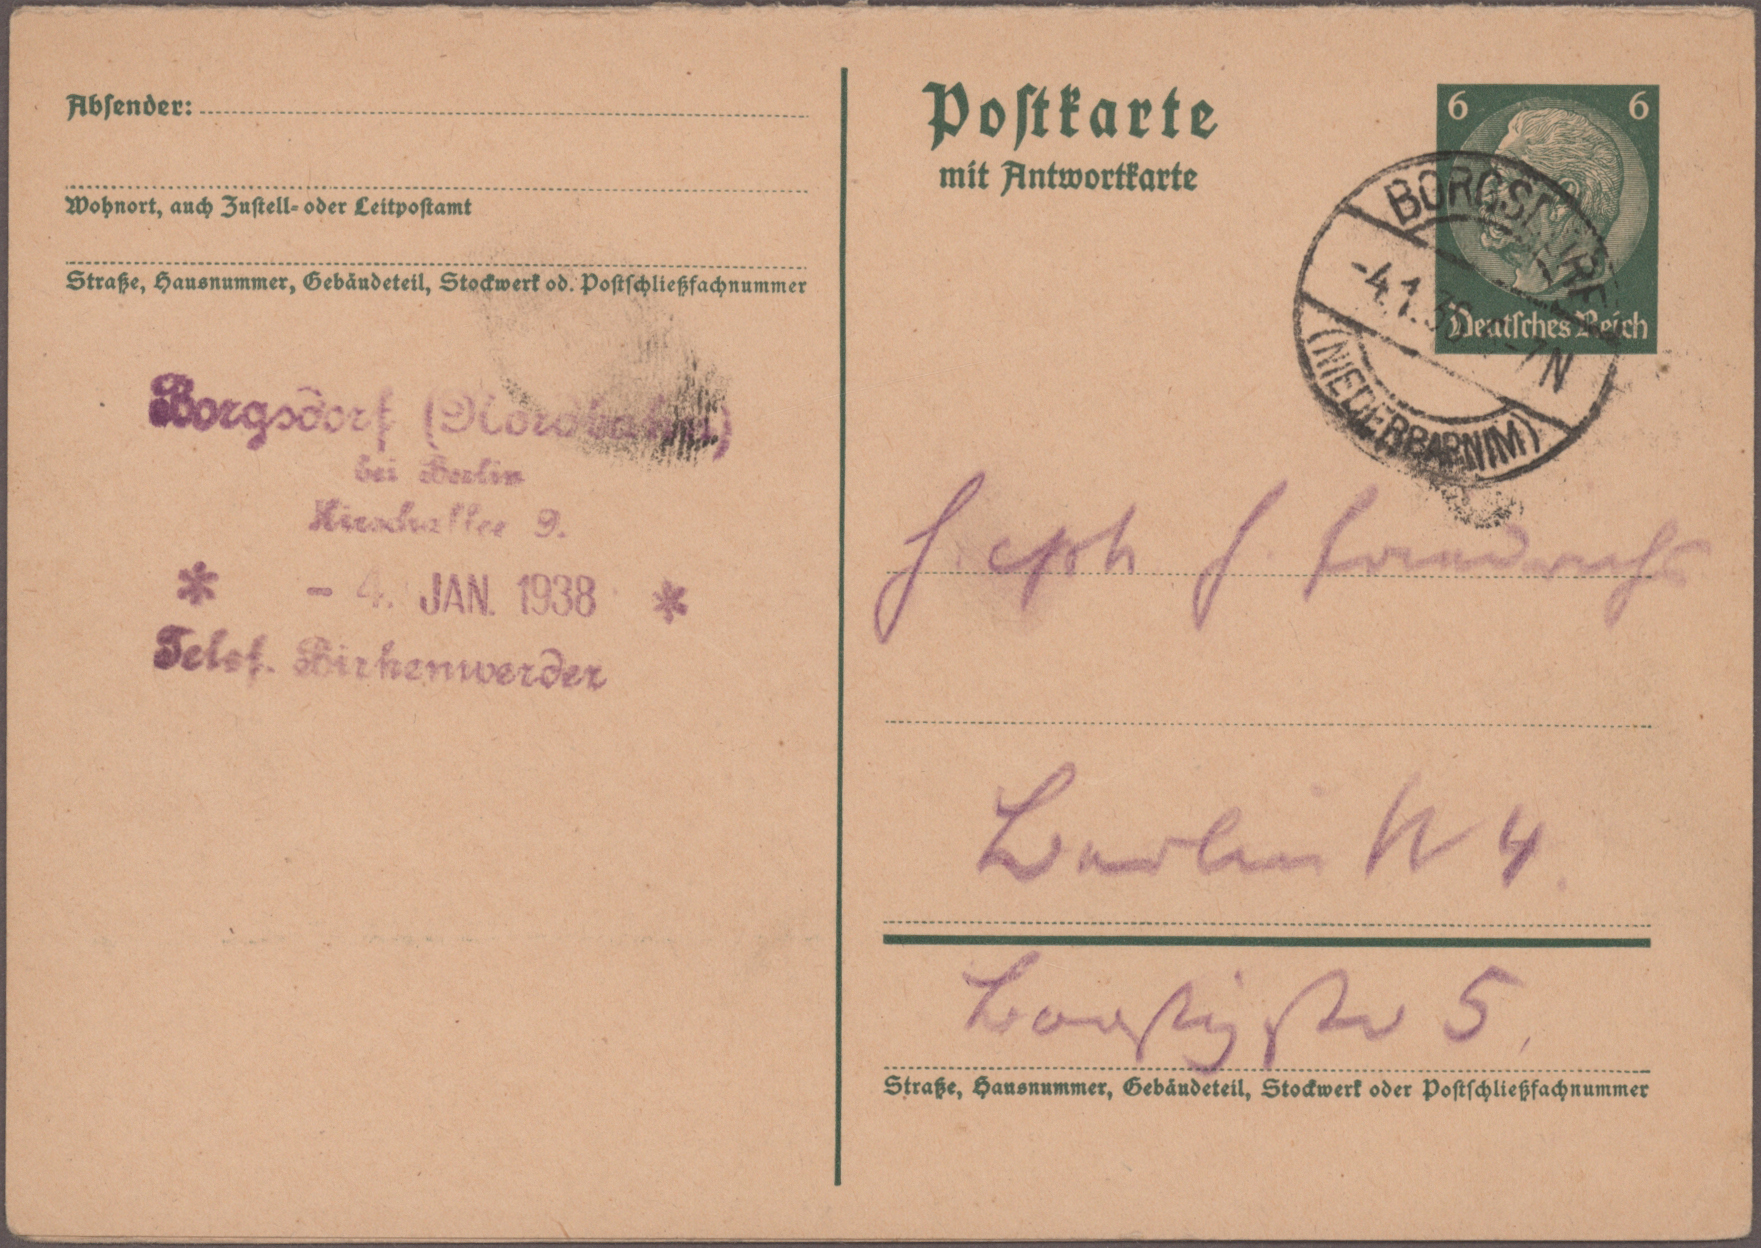 Absender:
Wohnort, auch Zustell- oder Leitpostamt
Straße, Hausnummer, Gebäudeteil, Stockwerk od. Postschließfachnummer
Borgsdorf (Nordbahn)
bei Berlin
Hirschallee 9.
* - 4. JAN. 1938 *
Telef. Birkenwerder
Postkarte
mit Antwortkarte
6 6
Deutsches Reich
BORGSDORF
-4.1.38 -7N
(NIEDERBARNIM)
Berlin N 4.
Borsigstr 5,
Straße, Hausnummer, Gebäudeteil, Stockwerk oder Postschließfachnummer